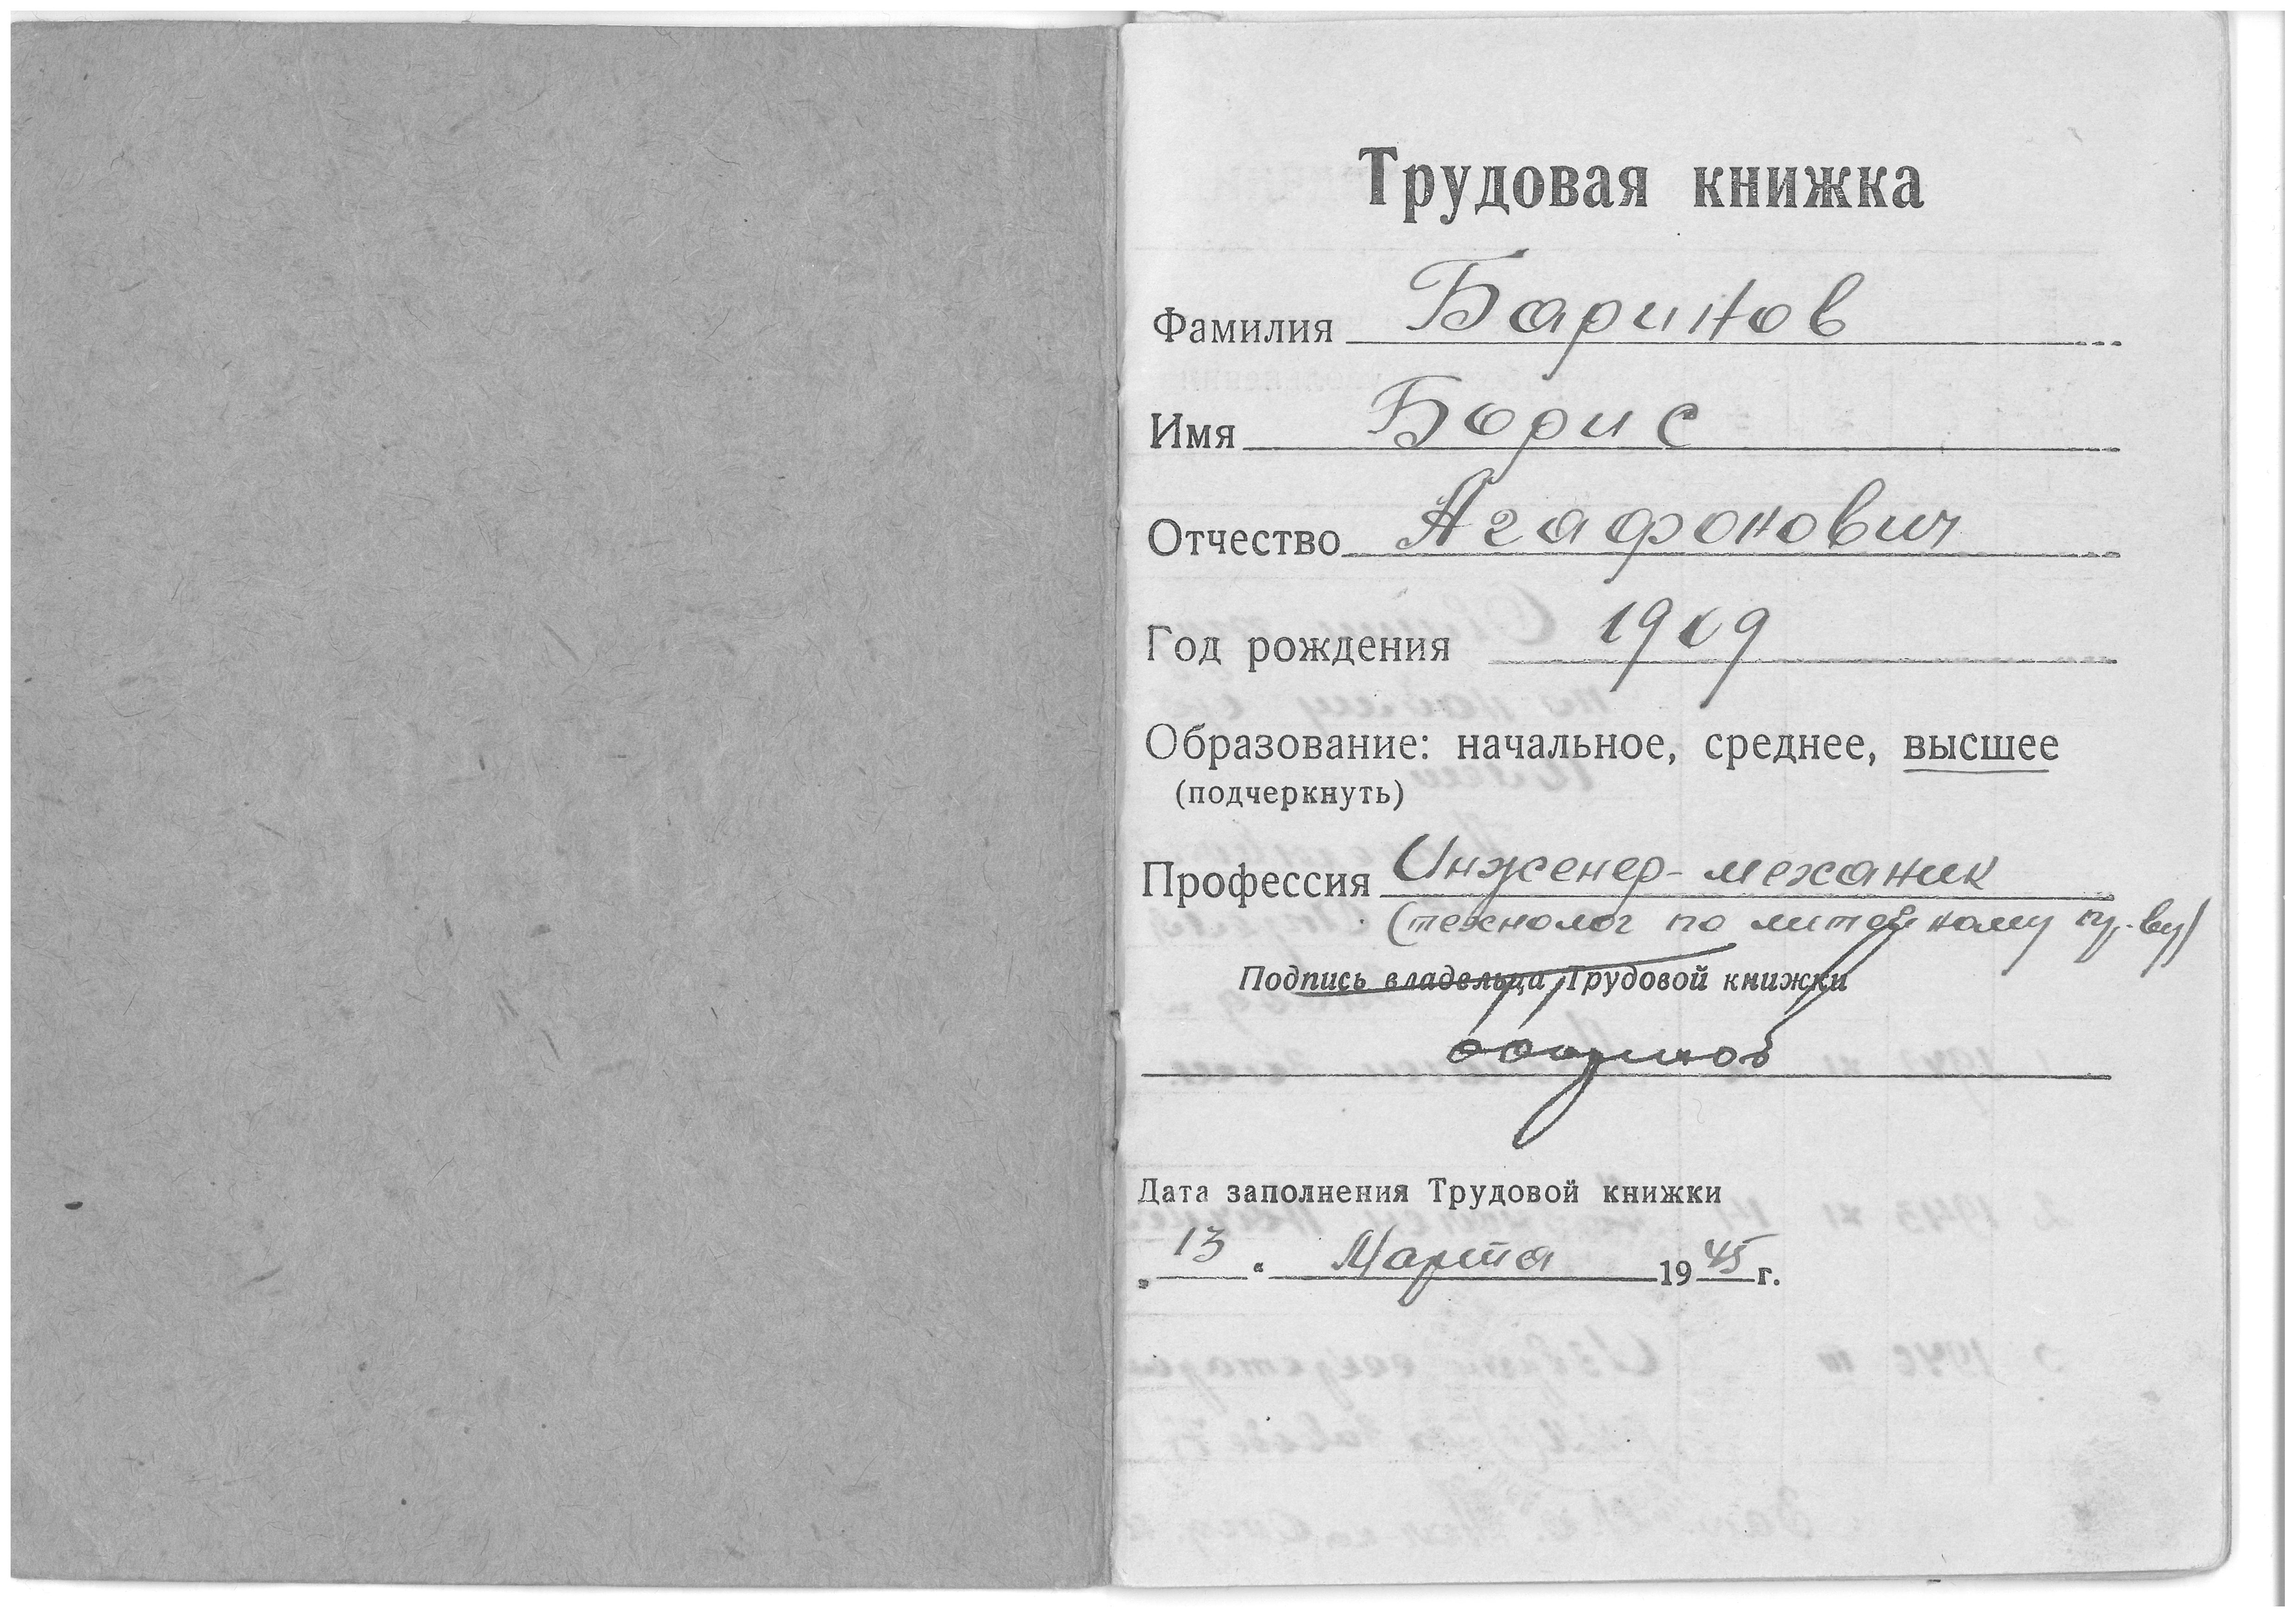 Трудовая книжка
Фамилия Баринов
Имя Борис
Отчество Агафонович
Год рождения 1909
Образование: начальное, среднее, высшее
(подчеркнуть)
Профессия Инженер-механик
(технолог по литейному пр.-ву)
Подпись владельца Трудовой книжки
ББаринов
Дата заполнения Трудовой книжки
„13“ Марта 1945 г.